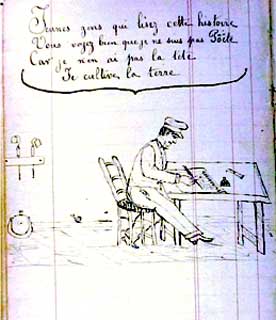 Jeunes gens qui lisez cette histoire
Vous voyez bien que je ne suis pas Pöëte
Car je n'en ai pas la tête
Je cultive la terre